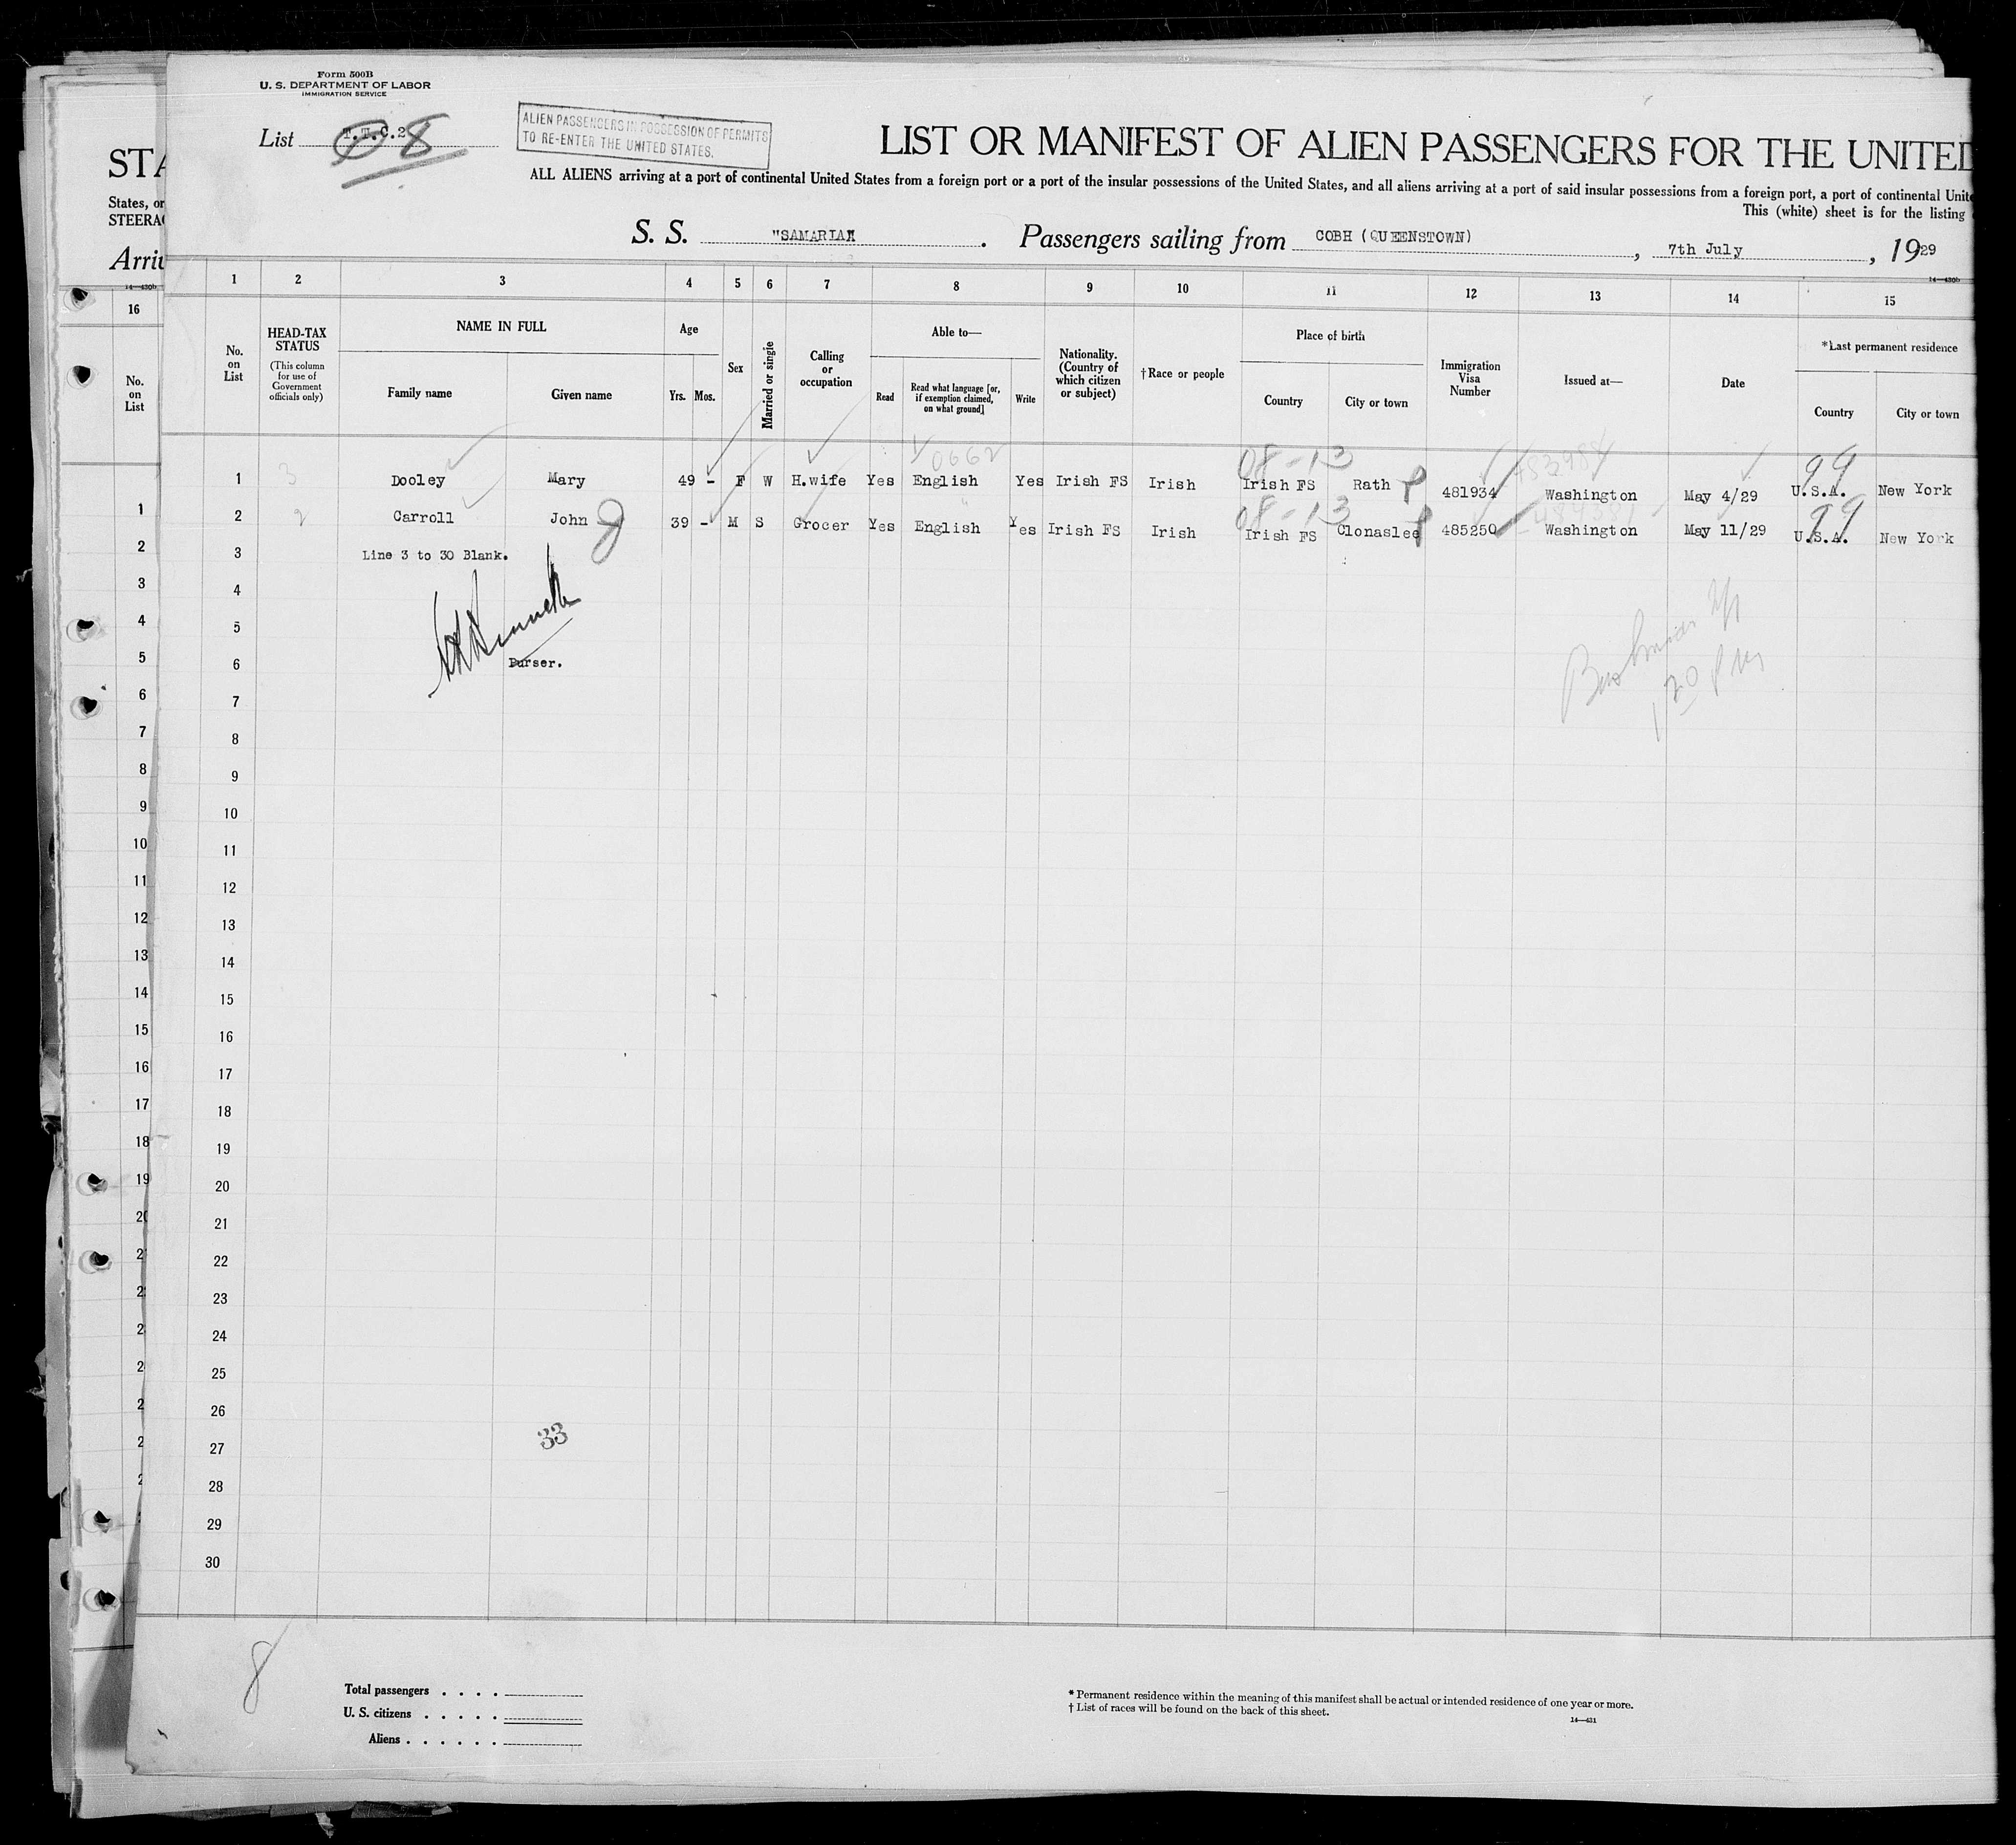 Form 500B
U. S. DEPARTMENT OF LABOR
IMMIGRATION SERVICE
List T.T.C.2 8
ALIEN PASSENGERS IN POSSESSION OF PERMITS
TO RE-ENTER THE UNITED STATES.
LIST OR MANIFEST OF ALIEN PASSENGERS FOR THE UNITED
ALL ALIENS arriving at a port of continental United States from a foreign port or a port of the insular possessions of the United States, and all aliens arriving at a port of said insular possessions from a foreign port, a port of continental Unite
This (white) sheet is for the listing
S. S. "SAMARIA". Passengers sailing from COBH (QUEENSTOWN), 7th July, 1929
14—430b
STA
States, or
STEERA
Arriv
14—430b
16
No. on List
1 2 3 4 5 6 7 8 9 10 11 12 13 14 15
No. on List
HEAD-TAX STATUS
(This column for use of Government officials only)
NAME IN FULL
Family name
Given name
Age
Yrs. Mos.
Sex
Married or single
Calling or occupation
Able to—
Read
Read what language [or, if exemption claimed, on what ground]
Write
Nationality. (Country of which citizen or subject)
†Race or people
Place of birth
Country
City or town
Immigration Visa Number
Issued at—
Date
*Last permanent residence
Country
City or town
0662 08-13 99
1 3 Dooley Mary 49 - F W H.wife Yes English Yes Irish FS Irish Irish FS Rath 481934 Washington May 4/29 U.S.A. New York
08-13 99
2 2 Carroll John 39 - M S Grocer Yes English Yes Irish FS Irish Irish FS Clonaslee 485250 Washington May 11/29 U.S.A. New York
3 Line 3 to 30 Blank.
4
5
6 Purser.
7
8
9
10
11
12
13
14
15
16
17
18
19
20
21
22
23
24
25
26
33
27
28
29
30
8
Total passengers . . . .
U. S. citizens . . . . .
Aliens . . . . . .
* Permanent residence within the meaning of this manifest shall be actual or intended residence of one year or more.
† List of races will be found on the back of this sheet.
14—431
1
2
3
4
5
6
7
8
9
10
11
12
13
14
15
16
17
18
19